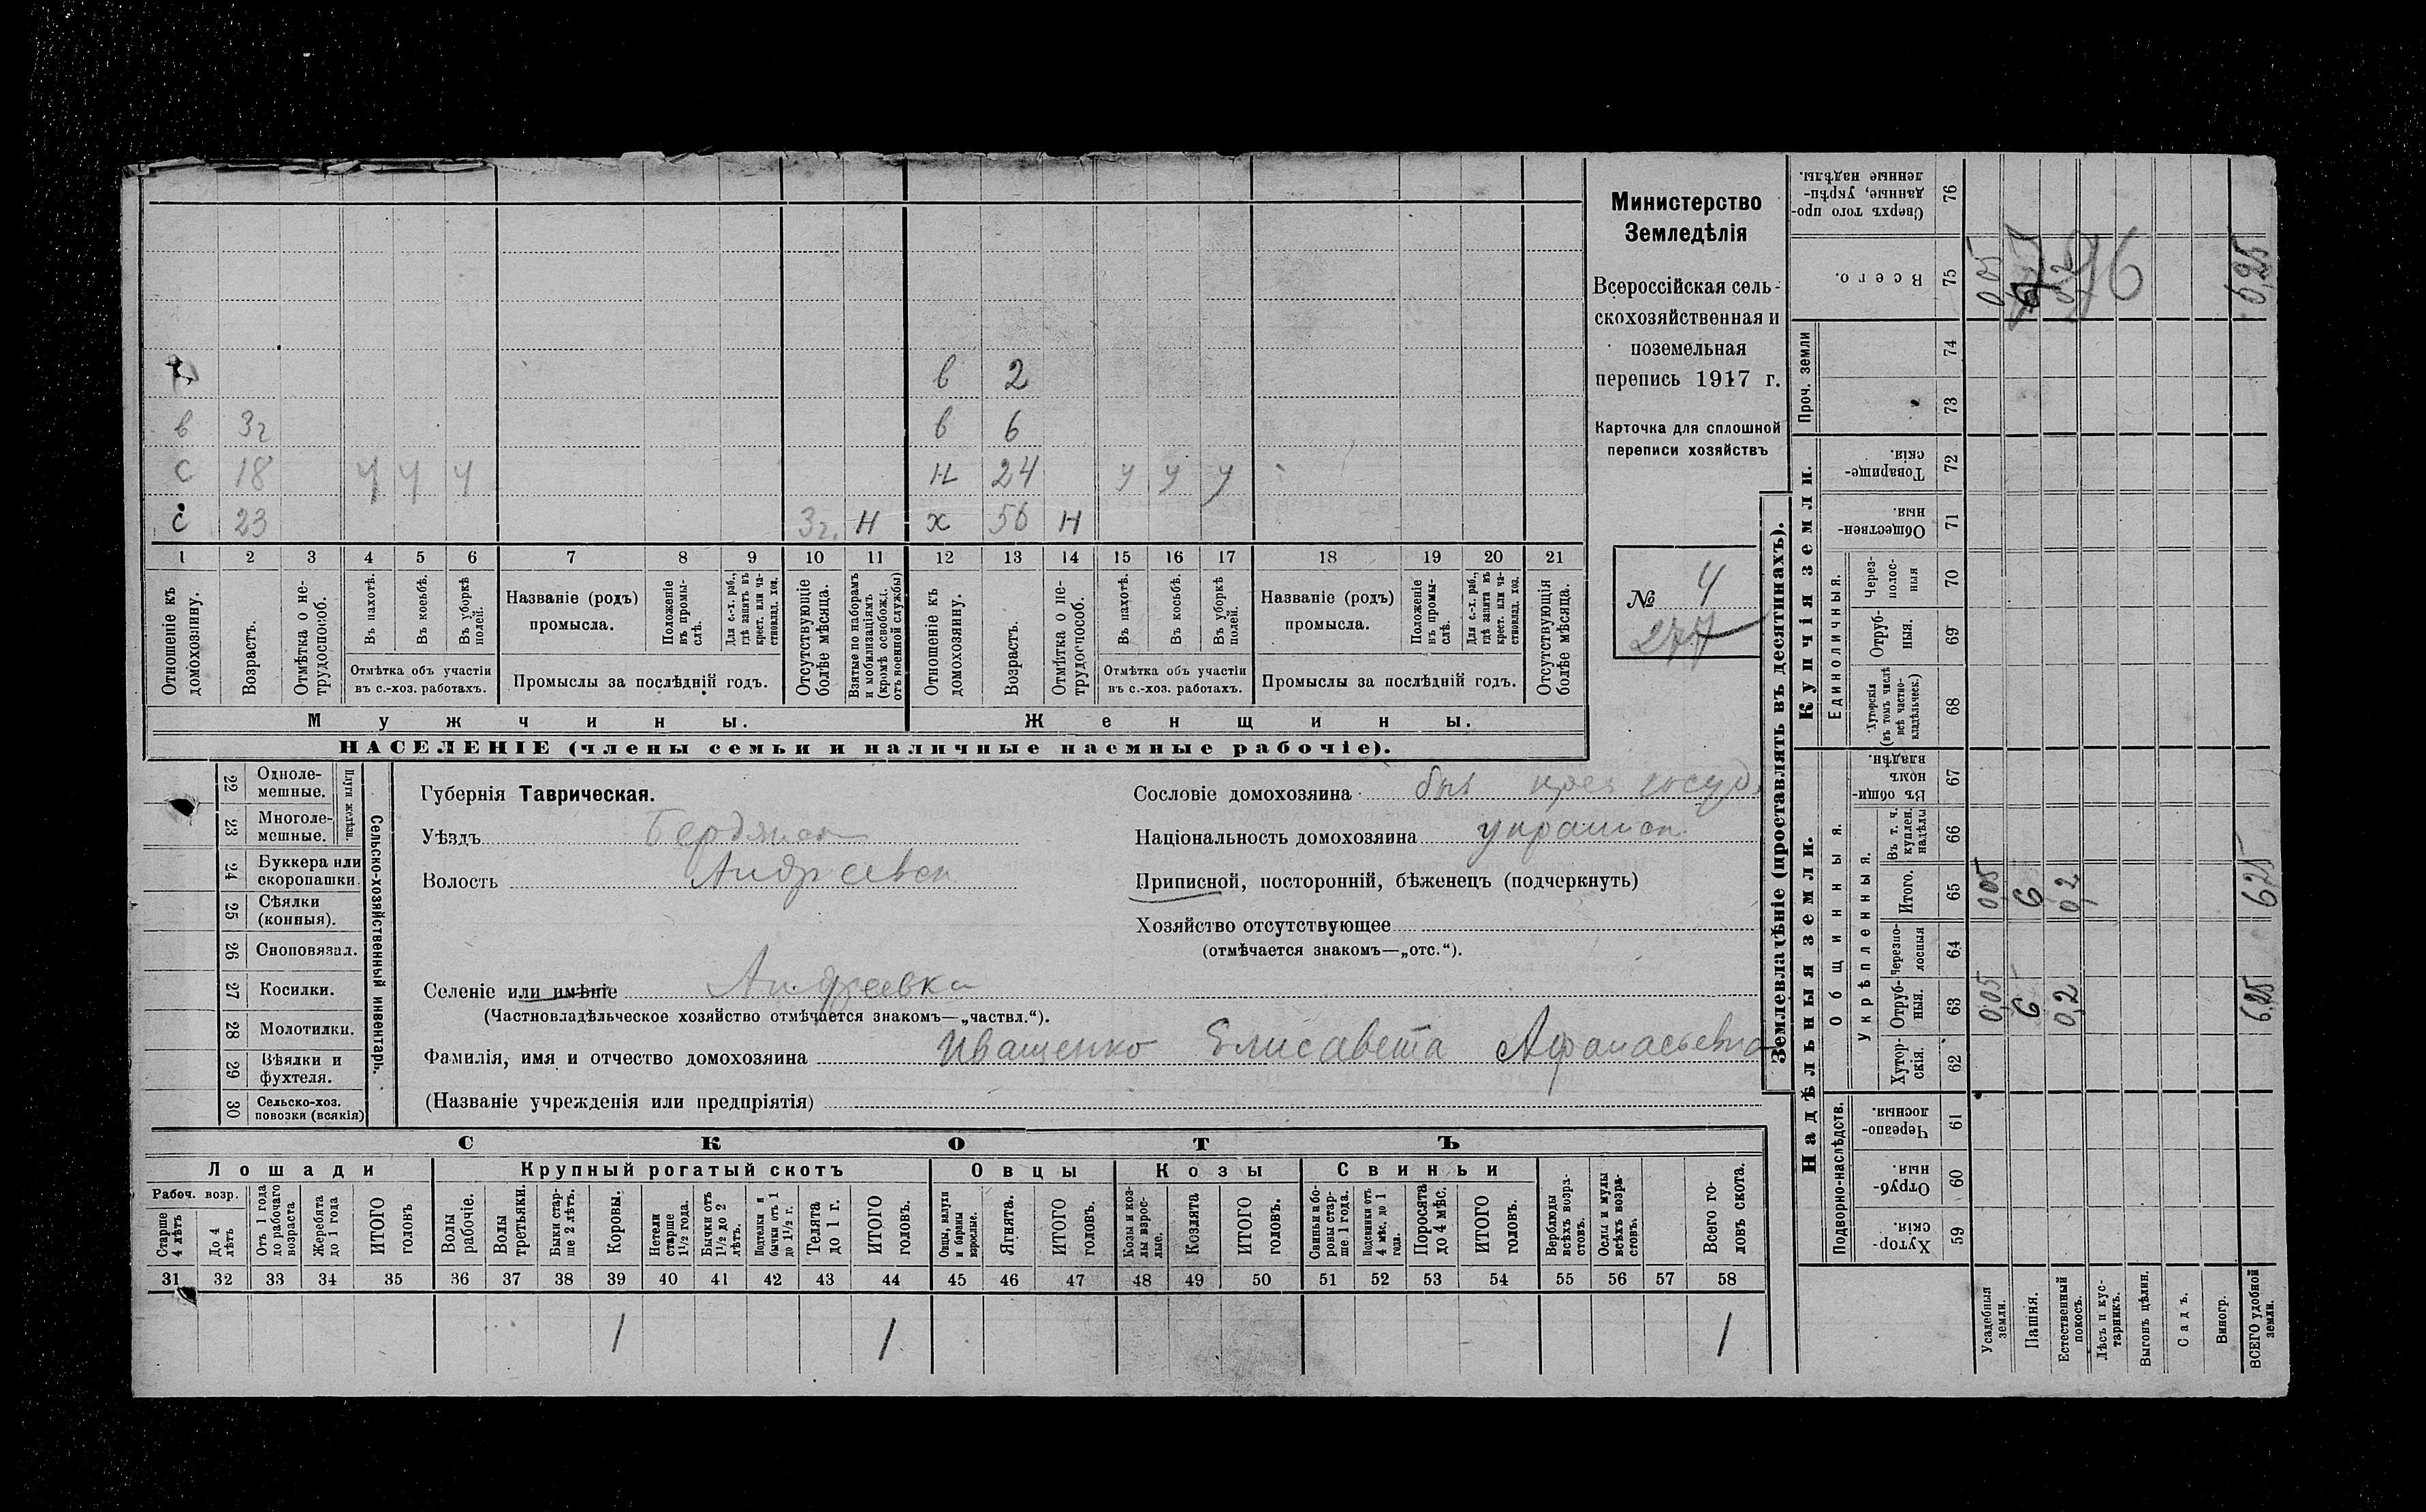 Министерство
Земледѣлія
Всероссійская сель-
скохозяйственная и
поземельная
перепись 1917 г.
Карточка для сплошной
переписи хозяйствъ
№ 4
277
в 2
в 3г в 6
с 18 у у у н 24 у у у
с 23 3г. н х 56 н
1 2 3 4 5 6 7 8 9 10 11 12 13 14 15 16 17 18 19 20 21
Отношеніе къ домохозяину.
Возрастъ.
Отмѣтка о не-трудоспособ.
Въ пахотѣ.
Въ косьбѣ.
Въ уборкѣ полей.
Отмѣтка объ участіи
въ с.-хоз. работахъ.
Названіе (родъ)
промысла.
Положеніе въ промы-слѣ.
Для с.-х. раб., гдѣ занятъ въ крест. или ча-стновлад. хоз.
Промыслы за послѣдній годъ.
Отсутствующіе болѣе мѣсяца.
Взятые по наборамъ и мобилизаціямъ (кромѣ освобожд. отъ военной службы)
Отношеніе къ домохозяину.
Возрастъ.
Отмѣтка о не-трудоспособ.
Въ пахотѣ.
Въ косьбѣ.
Въ уборкѣ полей.
Отмѣтка объ участіи
въ с.-хоз. работахъ.
Названіе (родъ)
промысла.
Положеніе въ промы-слѣ.
Для с.-х. раб., гдѣ занята въ крест. или ча-стновлад. хоз.
Промыслы за послѣдній годъ.
Отсутствующія болѣе мѣсяца.
Мужчины. Женщины.
НАСЕЛЕНІЕ (члены семьи и наличные наемные рабочіе).
Сельско-хозяйственный инвентарь.
Плуги желѣзн.
22 Одноле-мешные.
23 Многоле-мешные.
24 Буккера или скоропашки
25 Сѣялки (конныя).
26 Сноповязал.
27 Косилки.
28 Молотилки.
29 Вѣялки и фухтеля.
30 Сельско-хоз. повозки (всякія)
Губернія Таврическая.
Уѣздъ Бердянск
Волость Андреевск
Селеніе или имѣніе Андреевка
(Частновладѣльческое хозяйство отмѣчается знакомъ—„частвл.“).
Фамилія, имя и отчество домохозяина Иващенко Елисавета Афанасьевна
(Названіе учрежденія или предпріятія)
Сословіе домохозяина быв крес госуд.
Національность домохозяина украинск
Приписной, посторонній, бѣженецъ (подчеркнуть)
Хозяйство отсутствующее
(отмѣчается знакомъ—„отс.“).
СКОТЪ
Лошади Крупный рогатый скотъ Овцы Козы Свиньи
Рабоч. возр.
Старше 4 лѣтъ
До 4 лѣтъ
Отъ 1 года до рабочаго возраста
Жеребята до 1 года
ИТОГО головъ
Волы рабочіе.
Волы третьяки.
Быки стар-ше 2 лѣтъ.
Коровы.
Нетели старше 1½ года.
Бычки отъ 1½ до 2 лѣтъ.
Подтелки и бычки отъ 1 до 1½ г.
Телята до 1 г.
ИТОГО головъ.
Овцы, валухи и бараны взрослые.
Ягнята.
ИТОГО головъ.
Козы и коз-лы взрос-лые.
Козлята
ИТОГО головъ.
Свиньи и бо-ровы стар-ше 1 года.
Подсвинки отъ 4 мѣс. до 1 года.
Поросята до 4 мѣс.
ИТОГО головъ.
Верблюды всѣхъ возра-стовъ.
Ослы и мулы всѣхъ возра-стовъ.
Всего го-ловъ скота.
31 32 33 34 35 36 37 38 39 40 41 42 43 44 45 46 47 48 49 50 51 52 53 54 55 56 57 58
1 1 1
Землевладѣніе (проставлять въ десятинахъ).
Надѣльныя земли. Купчія земли. Проч. земли
Подворно-наслѣдств. Общинныя. Укрѣпленныя. Единоличныя.
59 Хутор-скія.
60 Отруб-ныя.
61 Черезпо-лосныя.
62 Хутор-скія.
63 Отруб-ныя.
64 Черезпо-лосныя
65 Итого.
66 Въ т. ч. куплен. надѣлы
67 Въ общи-номъ владѣн.
68 Хуторскія (въ томъ числѣ всѣ частно-владѣльческ.)
69 Отруб-ныя.
70 Через-полос-ныя
71 Обществен-ныя.
72 Товарище-скія.
73
74
75 Всего.
76 Сверхъ того про-данные, укрѣп-ленные надѣлы.
Усадебныя земли. 0,05 0,05 0,05
Пашня. 6 6
Естественный покосъ. 0,2 0,2 0,2
Лѣсъ и кус-тарникъ.
Выгонъ цѣлин.
Садъ.
Виногр.
ВСЕГО удобной земли. 6,25 6,25 6,25
76